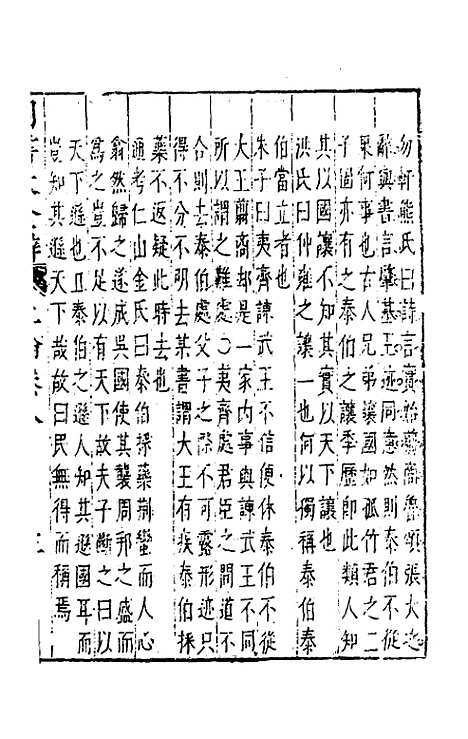 勿軒熊氏曰詩言實始翦商魯頌張大之
辭與書言肇基王迹同意然則泰伯不從
果何事也古人兄弟讓國如孤竹君之二
子固亦有之泰伯之讓季歷即此類人知
其以國讓不知其實以天下讓也
洪氏曰仲雍之讓一也何以獨稱泰伯泰
伯當立者也
朱子曰夷齊諫武王不信便休泰伯不從
大王翦商却是一家內事與諫武王不同
所以謂之難處○夷齊處君臣之間道不
合則去泰伯處父子之際不可露形迹只
得不分不明去某書謂大王有疾泰伯採
藥不返疑此時去也
通考仁山金氏曰泰伯採藥荆蠻而人心
翕然歸之遂成吳國使其襲周邦之盛而
為之豈不足以有天下故夫子斷之曰以
天下遜也且泰伯之遜人知其遜國耳而
豈知其遜天下哉故曰民無得而稱焉
四書大全辯 上論卷八